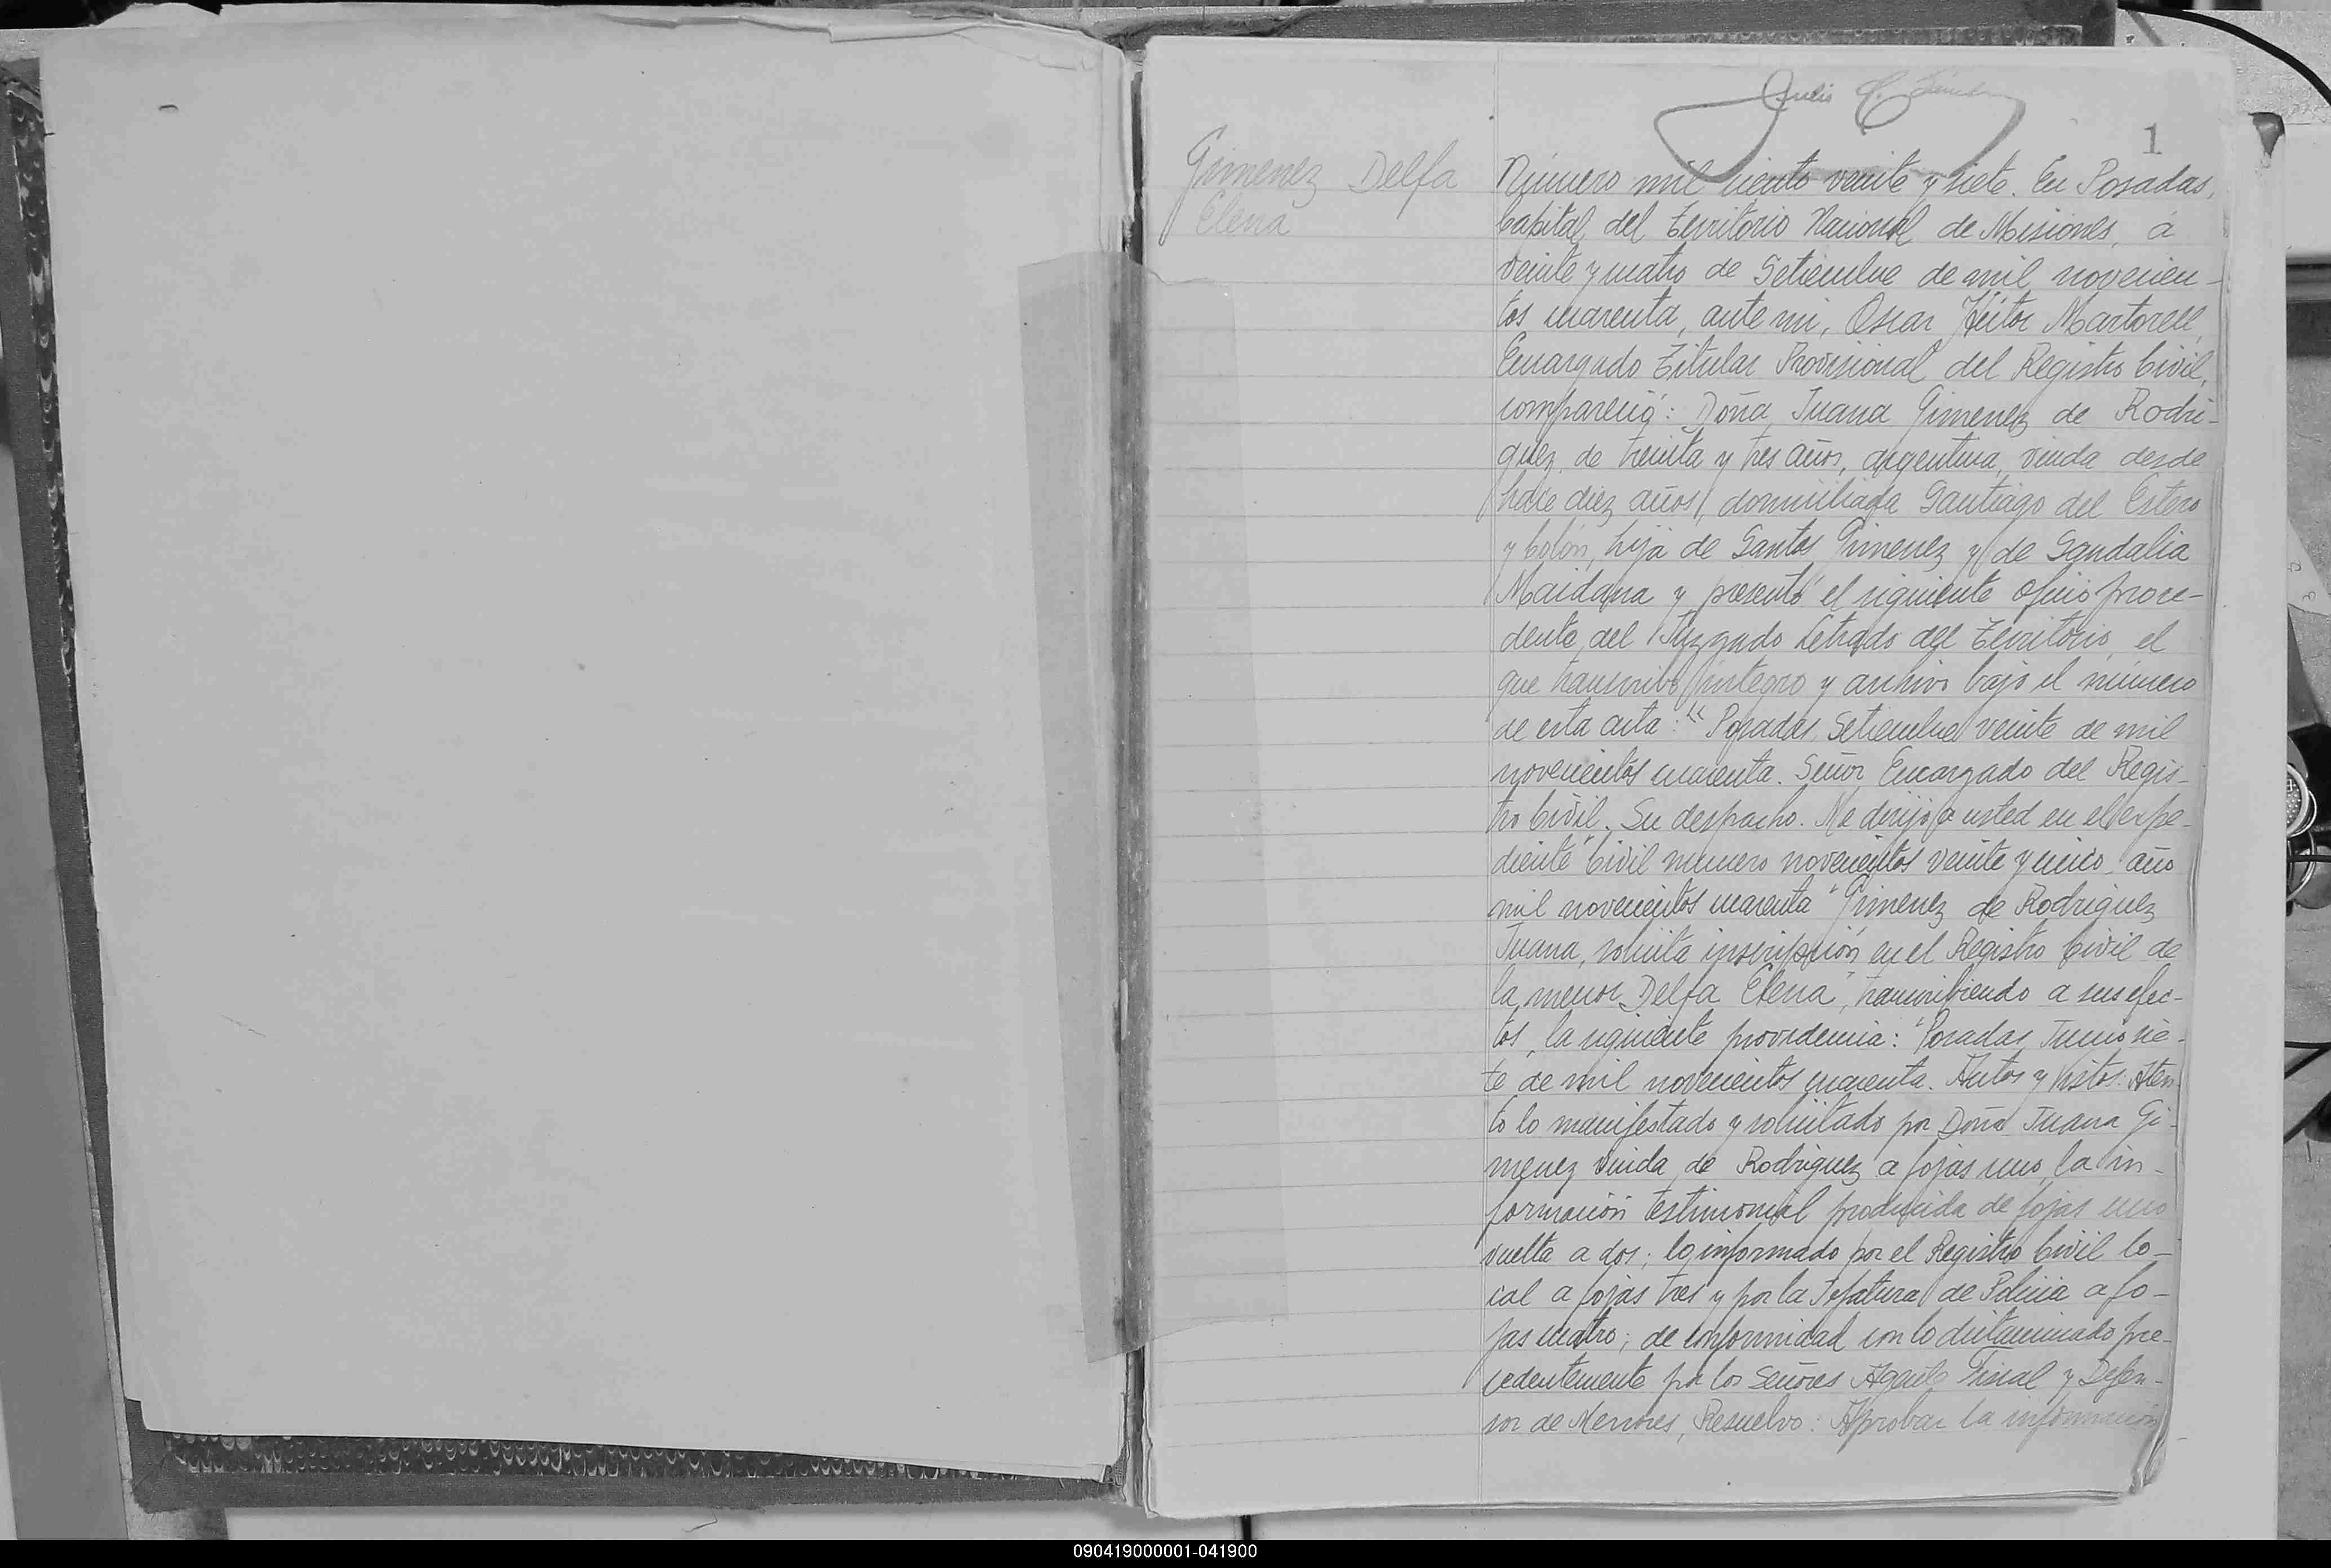 Julio C.
1
Gimenez Delfa
Elena
Número mil ciento veinte y siete. En Posadas,
Capital del Territorio Nacional de Misiones, á
veinte y cuatro de Setiembre de mil novecien-
tos cuarenta, ante mi, Oscar Héctor Martorell,
Encargado Titular Provisional del Registro Civil,
compareció: Doña Juana Gimenez de Rodri-
guez, de treinta y tres años, argentina, viuda desde
hace diez años, domiciliada Santiago del Estero
y Colón, hija de Santos Gimenez y de Sandalia
Maidana y presentó el siguiente oficio proce-
dente del Juzgado Letrado del Territorio, el
que transcribo íntegro y archivo bajo el número
de esta acta: "Posadas, Setiembre veinte de mil
novecientos cuarenta. Señor Encargado del Regis-
tro Civil. Su despacho. Me dirijo a usted en el expe-
diente Civil numero novecientos veinte y cinco año
mil novecientos cuarenta "Gimenez de Rodriguez
Juana, solicita inscripción en el Registro Civil de
la menor Delfa Elena", transcribiendo a sus efec-
tos, la siguiente providencia: "Posadas, Junio sie-
te de mil novecientos cuarenta. Autos y Vistos: Aten-
to lo manifestado y solicitado por Doña Juana Gi-
menez viuda de Rodriguez a fojas uno, la in-
formación testimonial producida de fojas uno
vuelta a dos; lo informado por el Registro Civil lo-
cal a fojas tres y por la Jefatura de Policia a fo-
jas cuatro; de conformidad con lo dictaminado pre-
cedentemente por los Señores Agente Fiscal y Defen-
sor de Menores, Resuelvo: Aprobar la información
090419000001-041900